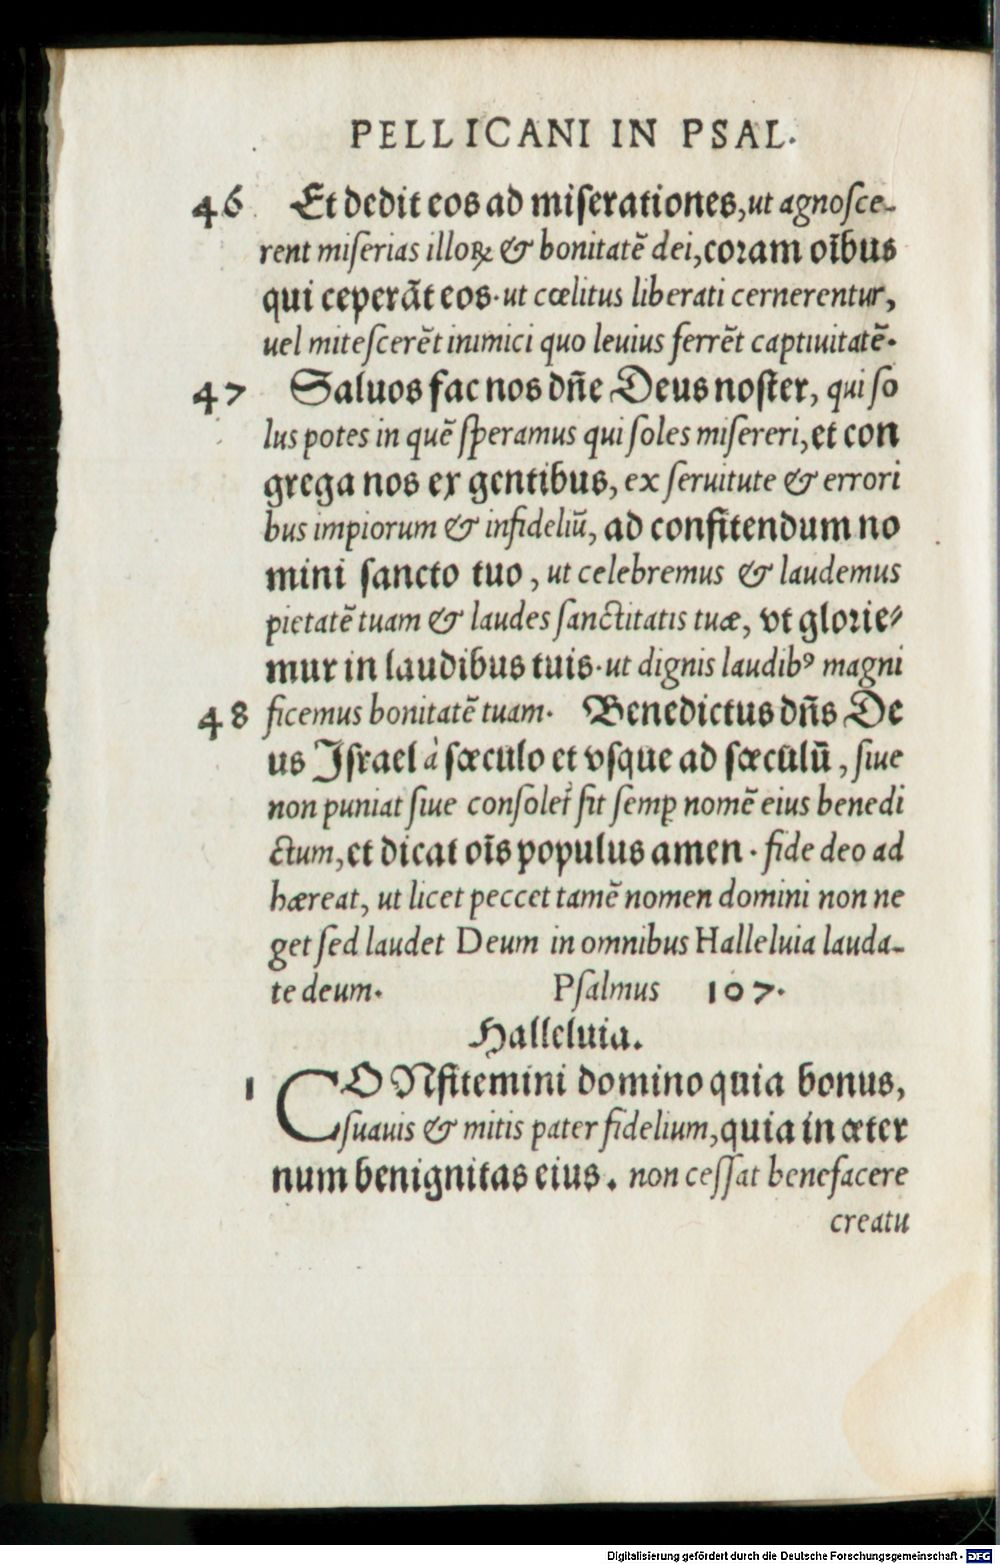 PELLICANI IN PSAL.
46 Et dedit eos ad miserationes, ut agnosce-
rent miserias illoꝝ & bonitatē dei, coram oībus
qui ceperāt eos. ut cœlitus liberati cernerentur,
uel mitescerēt inimici quo leuius ferrēt captiuitatē.
47 Saluos fac nos dñe Deus noster, qui so
lus potes in quē speramus qui soles misereri, et con
grega nos ex gentibus, ex seruitute & errori
bus impiorum & infideliū, ad confitendum no
mini sancto tuo, ut celebremus & laudemus
pietatē tuam & laudes sanctitatis tuæ, vt glorie⸗
mur in laudibus tuis. ut dignis laudibꝰ magni
48 ficemus bonitatē tuam. Benedictus dñs De
us Israel à sæculo et vsque ad sæculū, siue
non puniat siue consolet᷑ sit semꝑ nomē eius benedi
ctum, et dicat oīs populus amen. fide deo ad
hæreat, ut licet peccet tamē nomen domini non ne
get sed laudet Deum in omnibus Halleluia lauda-
te deum. Psalmus 107.
Halleluia.
1 CONfitemini domino quia bonus,
suauis & mitis pater fidelium, quia in æter
num benignitas eius. non cessat benefacere
creatu
Digitalisierung gefördert durch die Deutsche Forschungsgemeinschaft - DFG